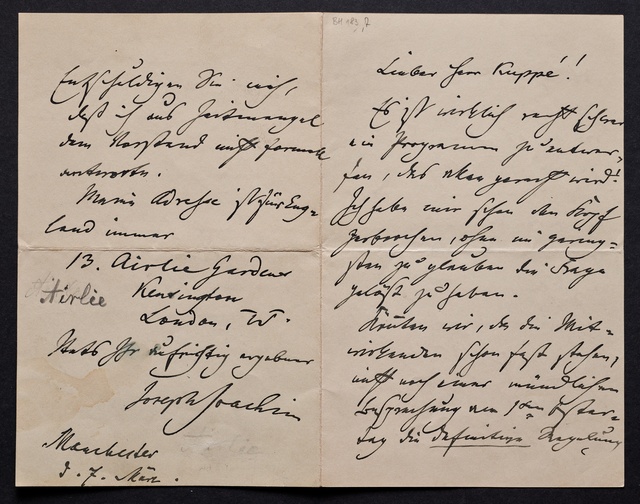 BH 183, 7
Lieber Herr Kuppé!
Es ist wirklich recht schwer
ein Programm zu entwer-
fen, das Allen gerecht wird!
Ich habe mir schon den Kopf
zerbrochen, ohne im gering-
sten zu glauben die Frage
gelöst zu haben.
Könten wir, da die Mit-
wirkenden schon fast stehen,
nicht nach einer mündlichen
Besprechung am 1sten Oster-
tag die definitive Regelung
Entschuldigen Sie mich,
daß ich aus Zeitmangel
dem Vorstand nicht formell
antworte.
Meine Adresse ist für Eng-
land immer
13. Airlie Gardens
Airlie
Kensington
London, W.
Stets Ihr aufrichtig ergebener
Joseph Joachim
Manchester
d. 7. März.